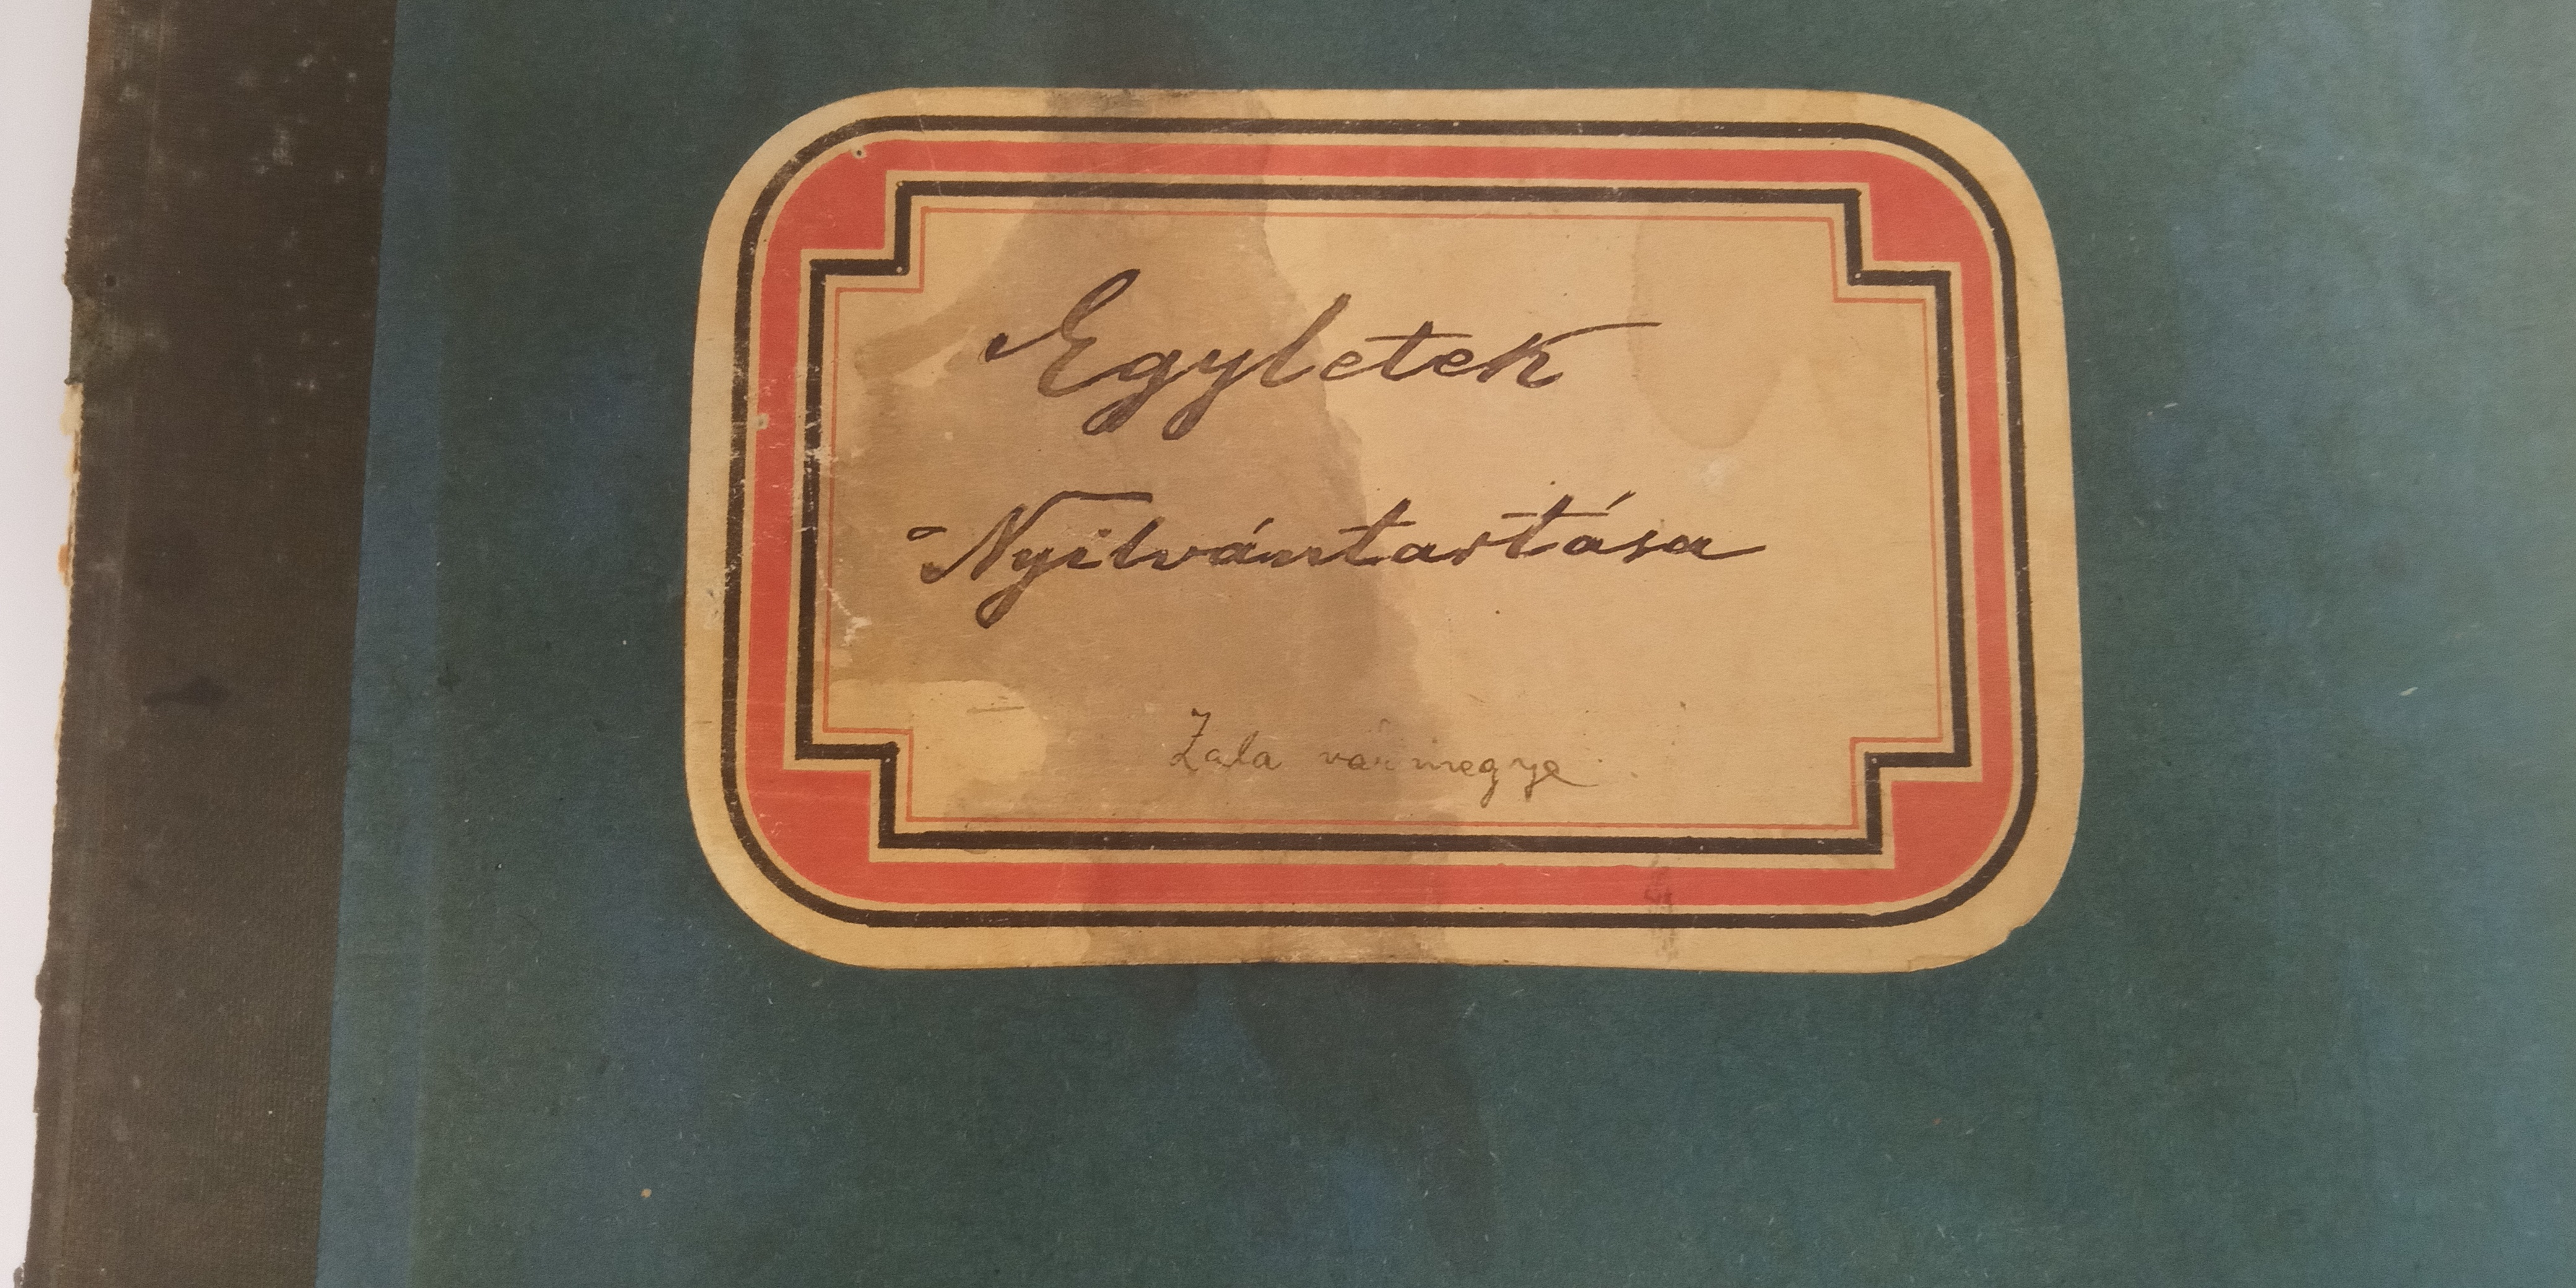 Egyletek
Nyilvántartása
Zala vármegye